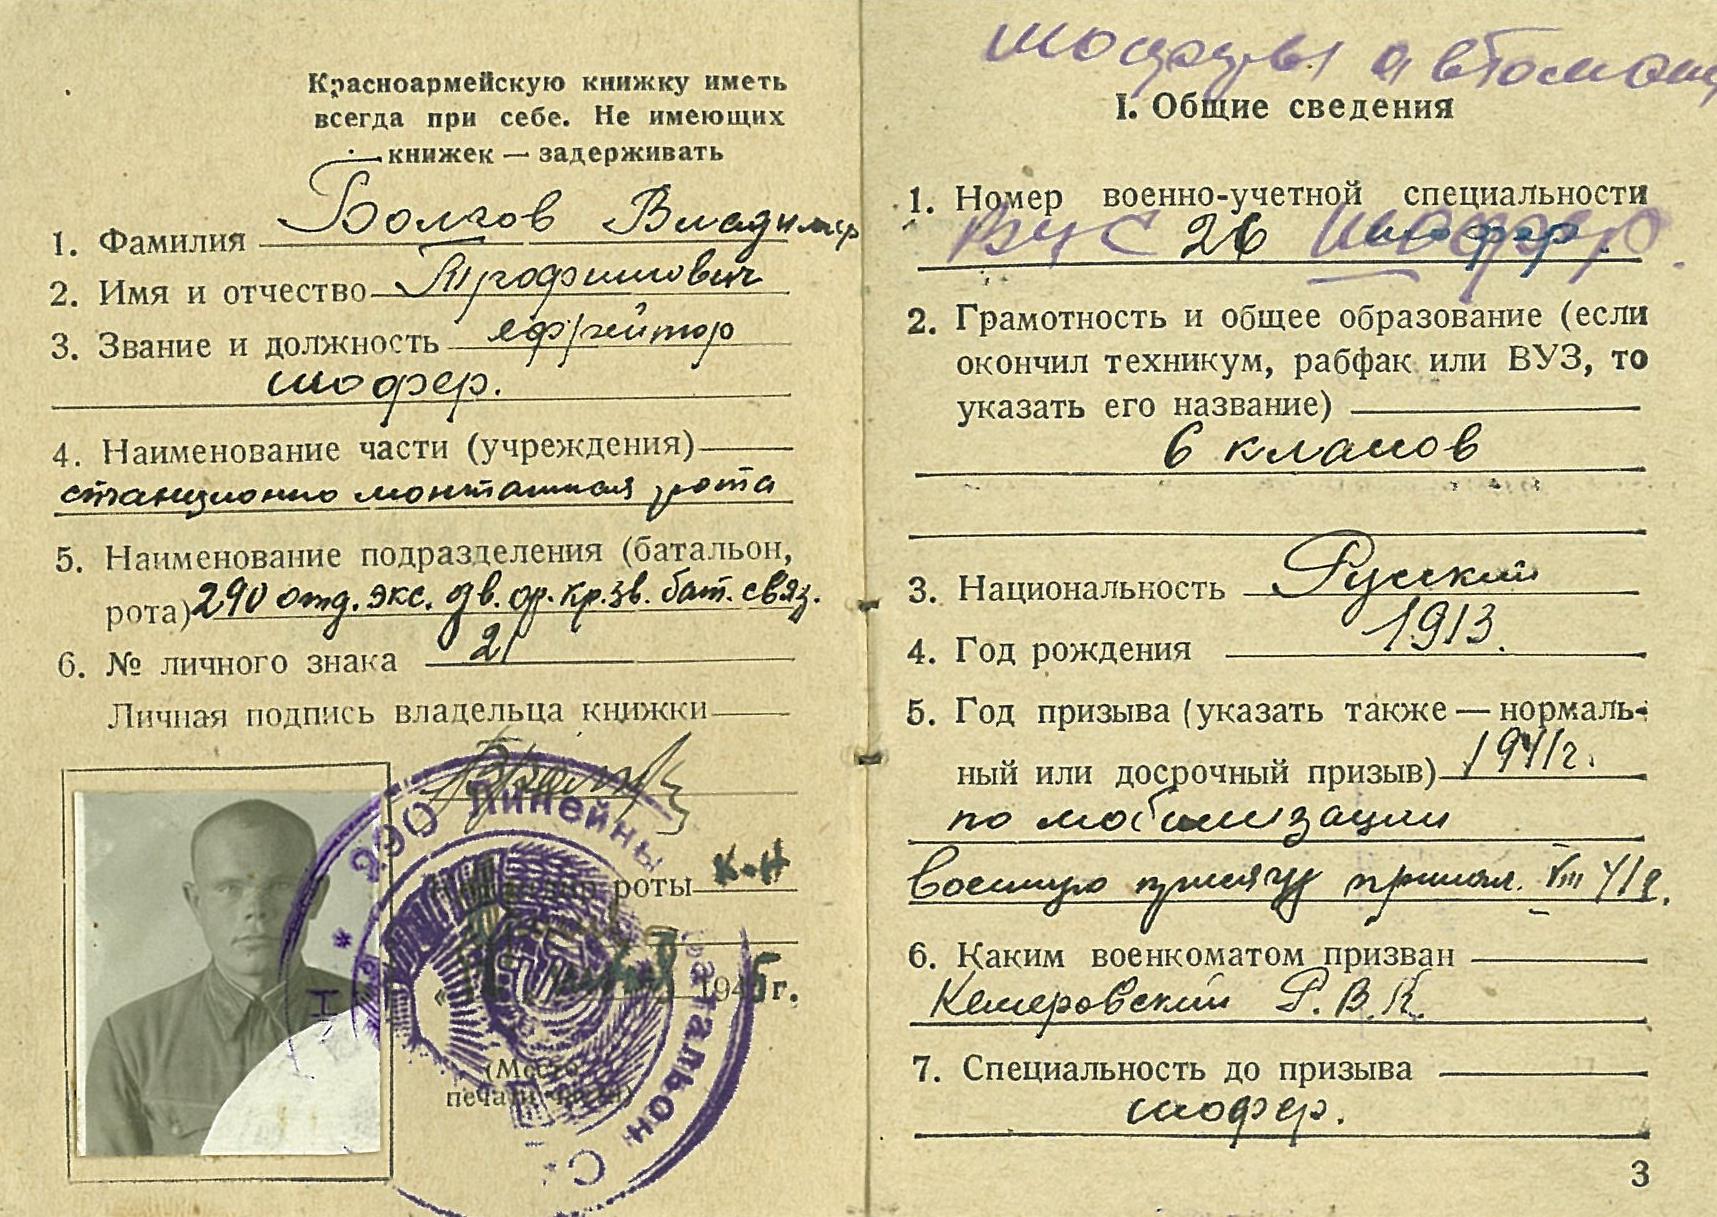 Красноармейскую книжку иметь
всегда при себе. Не имеющих
книжек — задерживать
1. Фамилия Болгов Владимир
2. Имя и отчество Трофимович
3. Звание и должность ефрейтор
шофер.
4. Наименование части (учреждения)
станционно монтажная рота
5. Наименование подразделения (батальон,
рота) 290 отд. экс. дв. ор. кр. зв. бат. связ.
6. № личного знака 21
Личная подпись владельца книжки
290 Линейны батальон С
роты к-н
1945 г.
(Место
печати части)
шоферы автомаш
I. Общие сведения
1. Номер военно-учетной специальности
ВУС 26 шофер
2. Грамотность и общее образование (если
окончил техникум, рабфак или ВУЗ, то
указать его название)
6 классов
3. Национальность Русский
4. Год рождения 1913.
5. Год призыва (указать также — нормаль-
ный или досрочный призыв) 1941 г.
по мобилизации
военную присягу принял. VIII 41 г.
6. Каким военкоматом призван
Кемеровский Р.В.К.
7. Специальность до призыва
шофер.
3